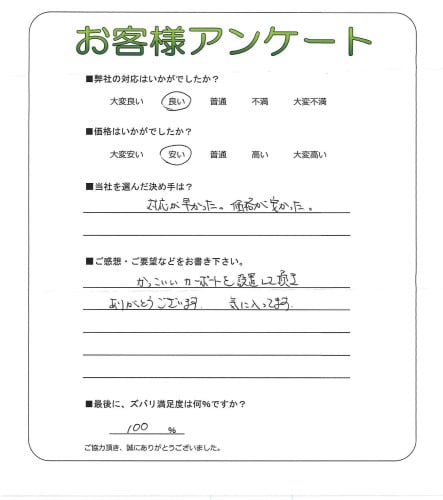 お客様アンケート
■弊社の対応はいかがでしたか?
大変良い 良い 普通 不満 大変不満
■価格はいかがでしたか?
大変安い 安い 普通 高い 大変高い
■当社を選んだ決め手は?
対応が早かった。価格が安かった。
■ご感想・ご要望などをお書き下さい。
かっこいいカーポートを設置して頂き
ありがとうございます。気に入ってます。
■最後に、ズバリ満足度は何%ですか?
100 %
ご協力頂き、誠にありがとうございました。